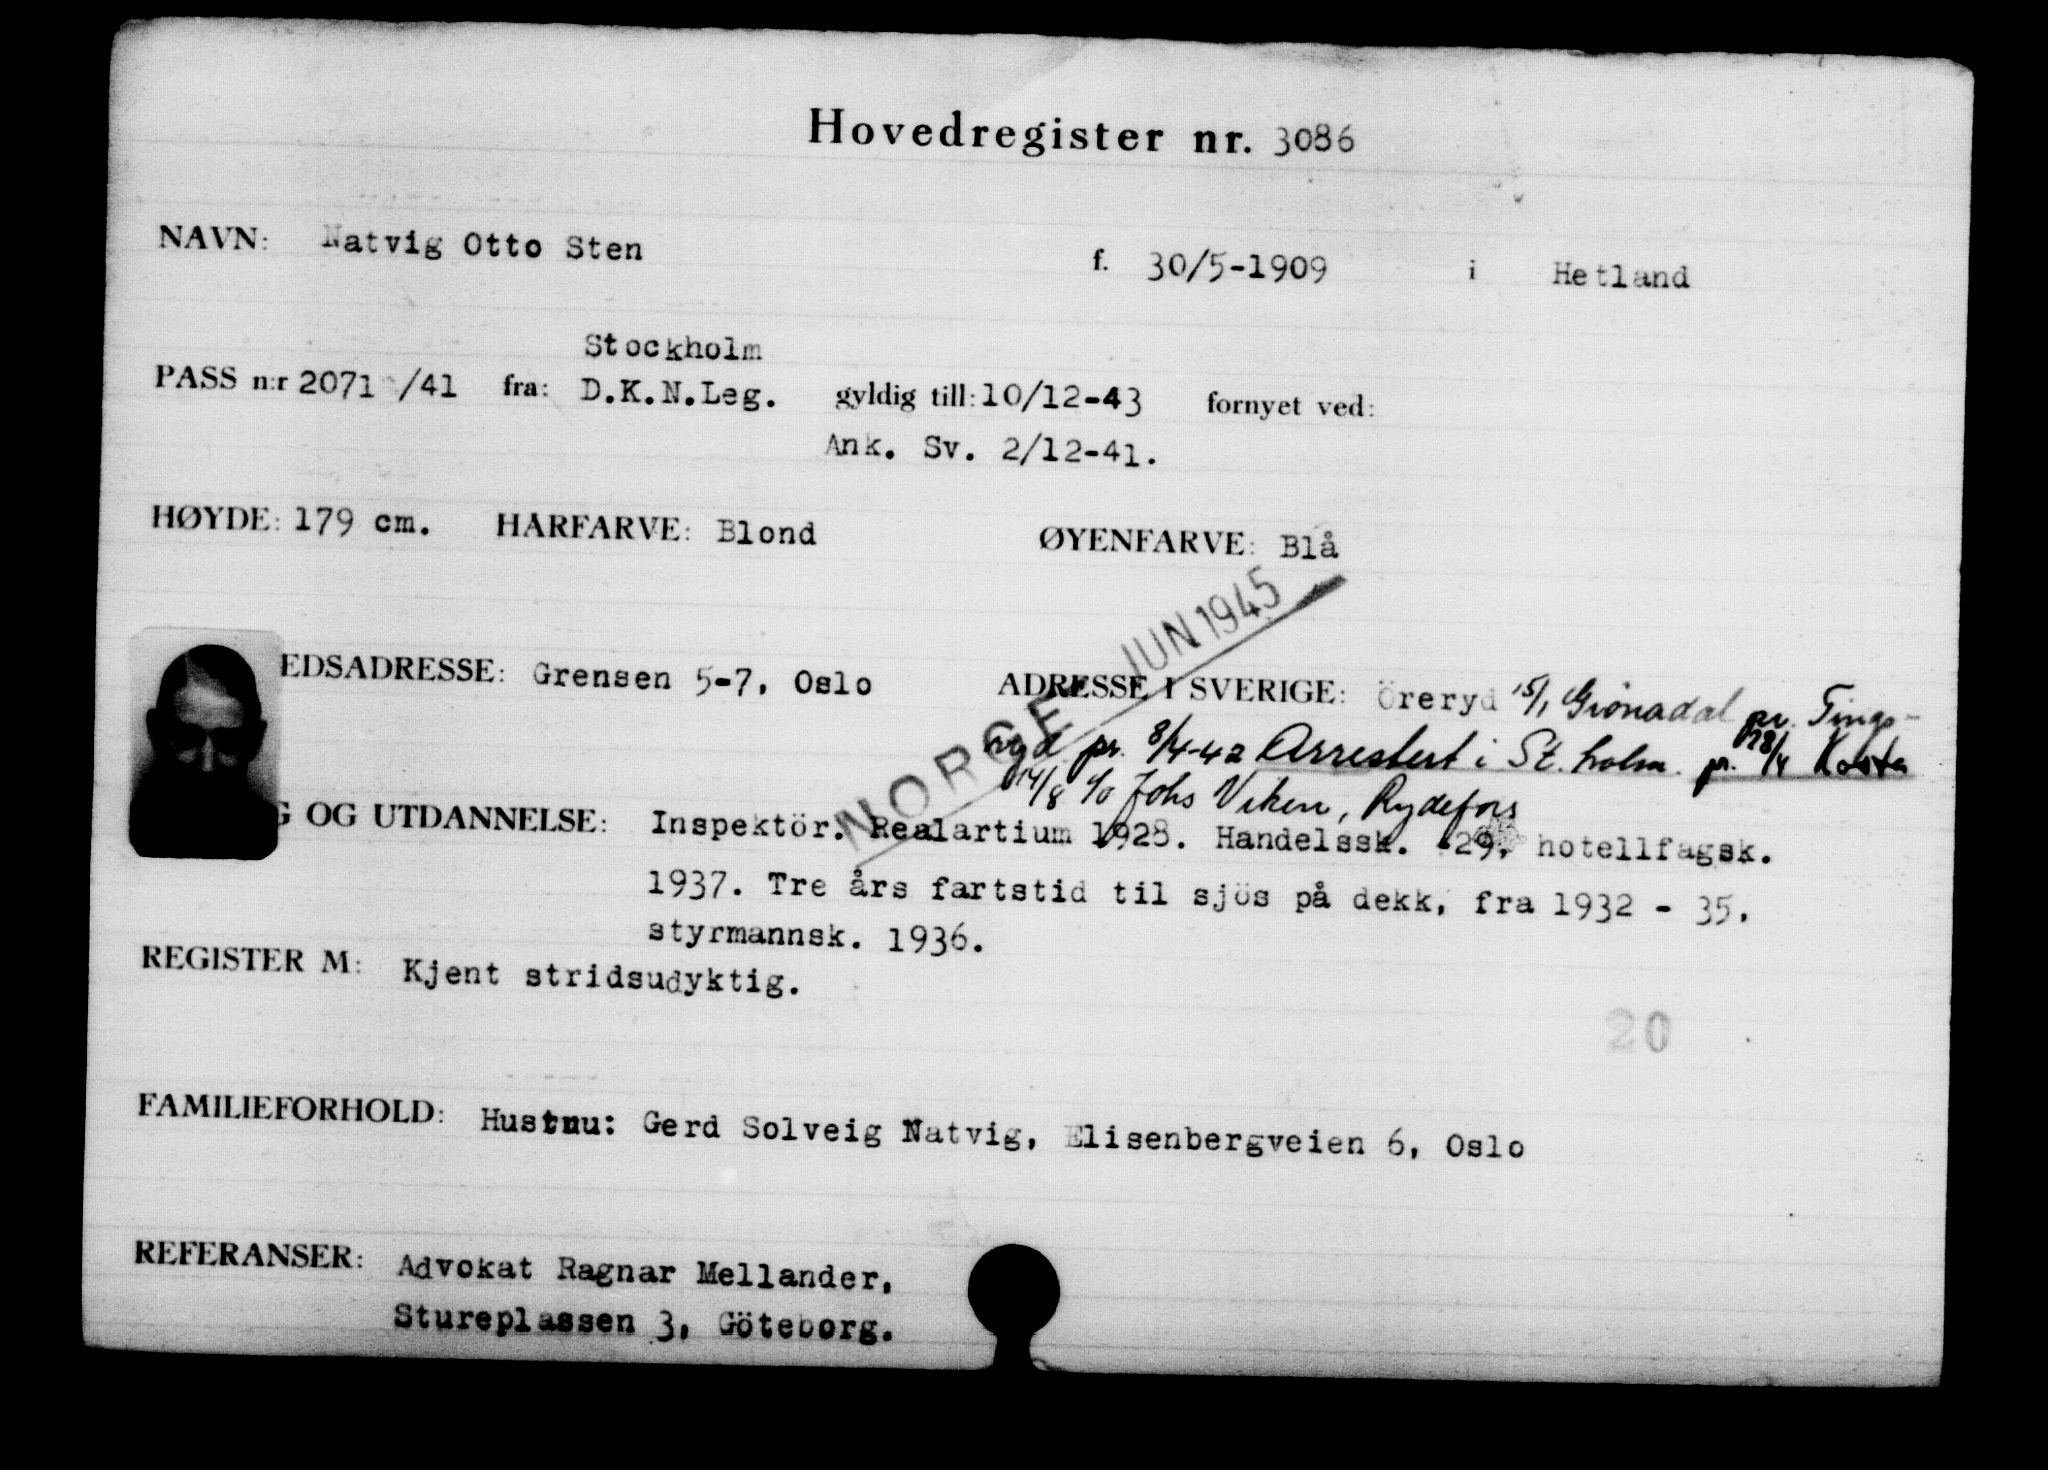 Hovedregister nr. 3086
NAVN: Natvig Otto Sten f. 30/5-1909 i Hetland
Stockholm
PASS n:r 2071 /41 fra: D.K.N.Leg. gyldig till: 10/12-43 fornyet ved:
Ank. Sv. 2/12-41.
HØYDE: 179 cm. HARFARVE: Blond ØYENFARVE: Blå
NORGE JUN 1945
EDSADRESSE: Grensen 5-7, Oslo ADRESSE I SVERIGE: Öreryd 15/1 Grönadal pr. Tings-
ryd pr. 8/4-42 Arrestert i St.holm. pr. 28/4 Kosta
14/8 c/o Johs Viken, Rydefors
G OG UTDANNELSE: Inspektör. Realartium 1928. Handelssk. -29, hotellfagsk.
1937. Tre års fartstid til sjös på dekk, fra 1932 - 35,
styrmannsk. 1936.
REGISTER M: Kjent stridsudyktig.
20
FAMILIEFORHOLD: Hustru: Gerd Solveig Natvig, Elisenbergveien 6, Oslo
REFERANSER: Advokat Ragnar Mellander,
Stureplassen 3, Göteborg.